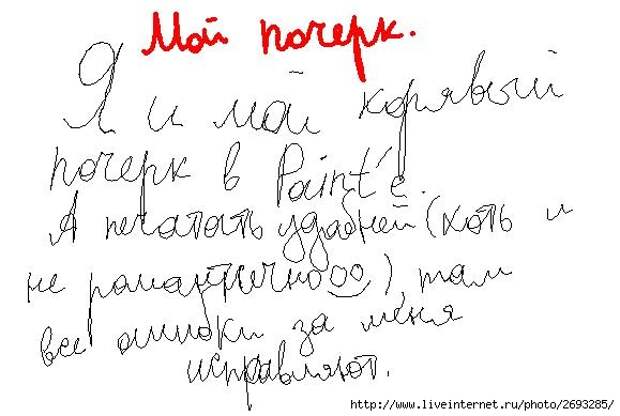 Мой почерк.
Я и мой корявый
почерк в Paint'е.
А печатать удобней (хоть и
не романтично), там
все ошибки за меня
исправляют.
http://www.liveinternet.ru/photo/2693285/